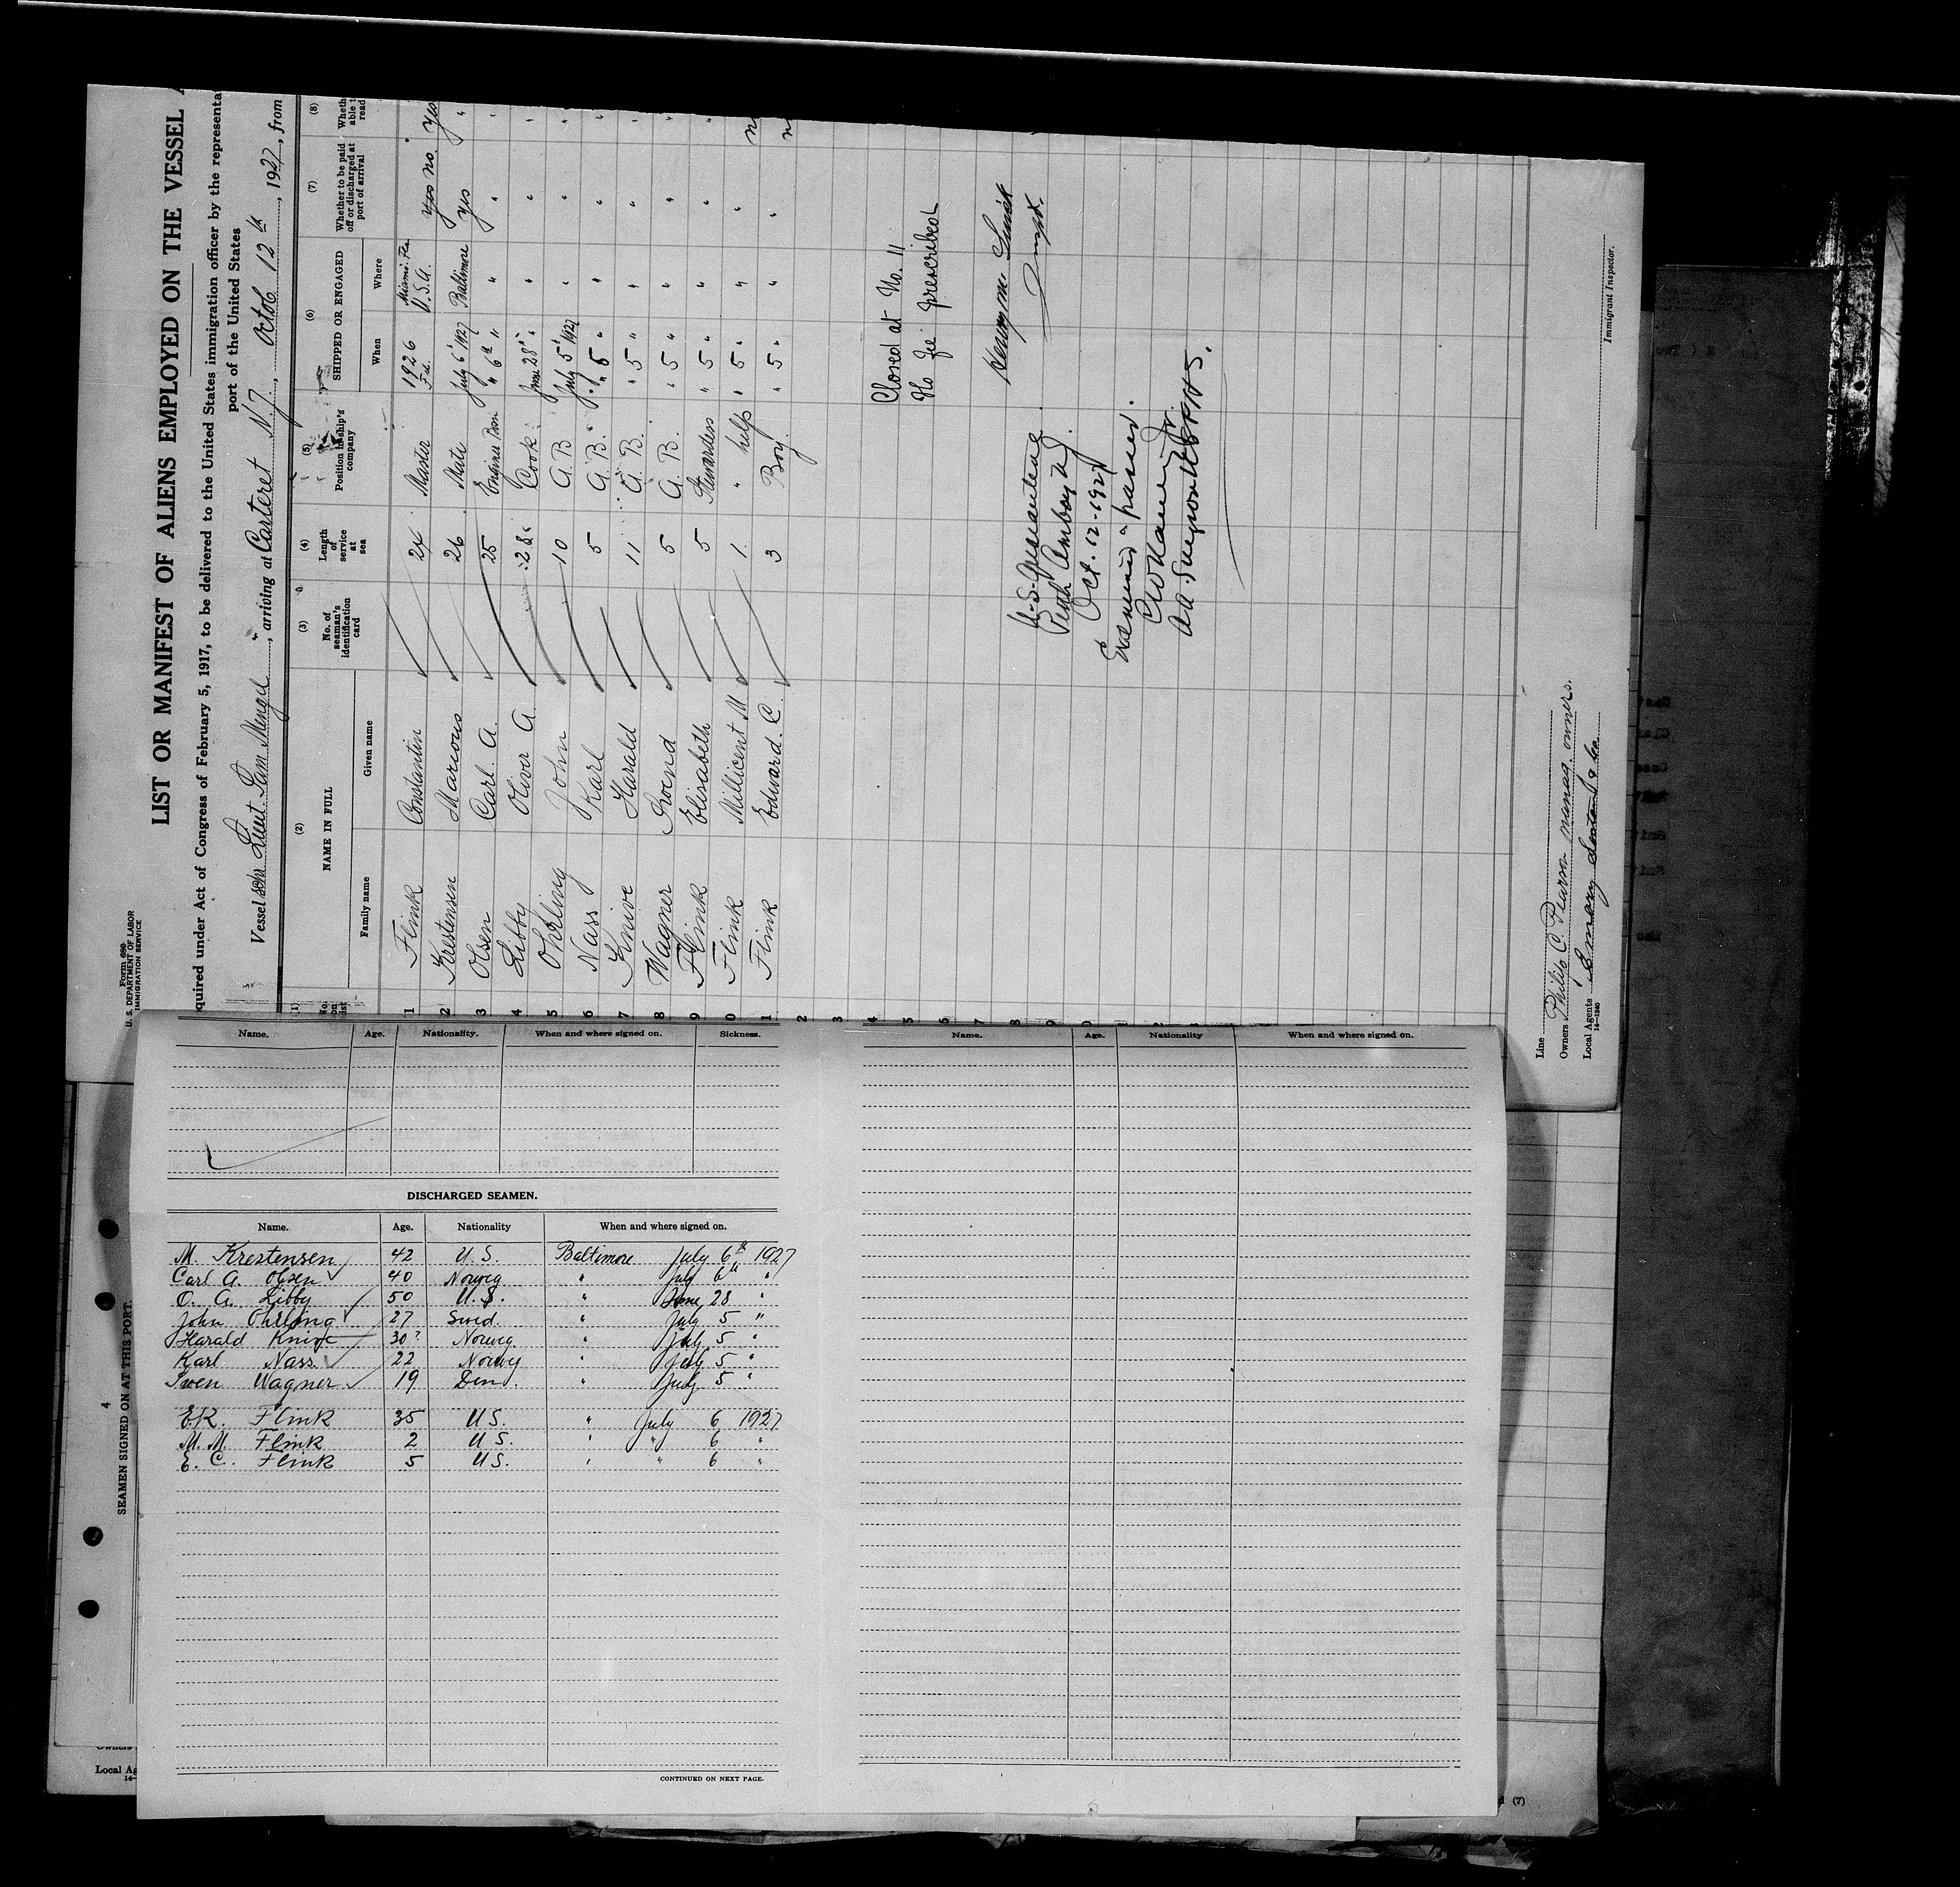 Form 689
U. S. DEPARTMENT OF LABOR
IMMIGRATION SERVICE
LIST OR MANIFEST OF ALIENS EMPLOYED ON THE VESSEL
quired under Act of Congress of February 5, 1917, to be delivered to the United States immigration officer by the representa
port of the United States
Vessel schr. Lieut. Sam Mengel, arriving at Carteret N.J., Octob 12th, 1927, from
(1) (2) (3) (4) (5) (6) (7) (8)
No. on list NAME IN FULL No. of seaman's identification card Length of service at sea Position in ship's company SHIPPED OR ENGAGED Whether to be paid off or discharged at port of arrival Wheth able t read
Family name Given name When Where
1 Flink Constantin 24 Master 1926 Miami. Fla U.S.A. yes no. yes
2 Krestensen Marious 26 Mate July 6 1927 Baltimore yes "
3 Olsen Carl. A. 25 Engineer " 6th " " " "
4 Libby Oliver A. 28 Cook June 28 " " " "
5 Ohrling John 10 A.B July 5 1927 " " "
6 Nass Karl 5 A.B. " 5 " " " "
7 Knive Harald 11 A.B. " 5 " " " "
8 Wagner Svend 5 A.B. " 5 " " " "
9 Flink Elisabeth 5 Stewardess " 5 " " " "
0 Flink Millicent M 1. " help " 5 " " "
1 Flink Edward. C. 3 Boy. " 5 " " "
2
3
4
5
6
7
8
9
0
1
2
3
Closed at No. 11
No fee prescribed
U.S. Quarantine
Perth Amboy NJ.
Oct. 12-1927
Examined & passed.
Immigrant Inspector.
Line
Owners Philip C. Pearson manag. owners.
Local Agents
14—1240
Name. Age. Nationality. When and where signed on. Sickness.
DISCHARGED SEAMEN.
Name. Age. Nationality When and where signed on.
M. Krestensen 42 U.S. Baltimore July 6th 1927
Carl A. Olsen 40 Norweg " July 6th "
O. A. Libby 50 U.S. " June 28 "
John Ohrling 27 Swed. " July 5 "
Harald Knive 30? Norweg. " July 5 "
Karl Nass 22 Norwg " July 5 "
Swen Wagner 19 Den. " July 5 "
E.K. Flink 35 U S. " July 6 1927
M. M. Flink 2 U S. " " 6 "
E. C. Flink 5 U S. " " 6 "
CONTINUED ON NEXT PAGE.
Name. Age. Nationality When and where signed on.
4
SEAMEN SIGNED ON AT THIS PORT.
Owners
Local Ag
14—
(7)